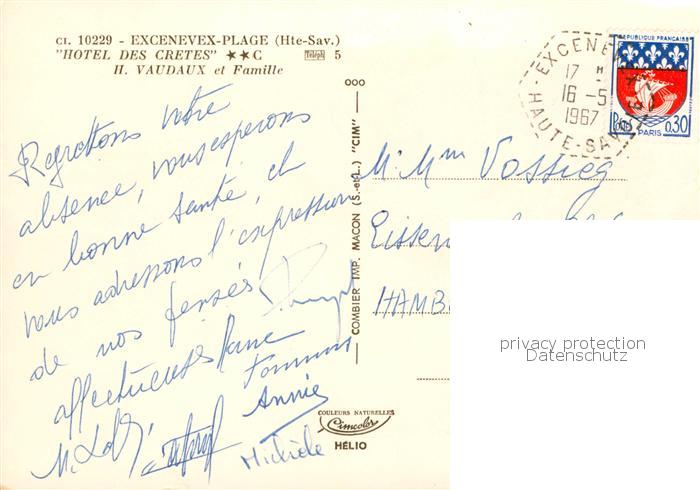 CI. 10229 - EXCENEVEX-PLAGE (Hte-Sav.)
"HOTEL DES CRETES" ★★C Téléph 5
H. VAUDAUX et Famille
Regrettons votre
absence, vous esperons
en bonne santé, et
vous adressons l'expression
de nos pensés
affectueuses
Annie
Michèle
COMBIER IMP. MACON (S.-et-L.) "CIM"
COULEURS NATURELLES
Cimcolor
HÉLIO
EXCENEVEX
17 H
16-5
1967
HAUTE-SAVOIE
REPUBLIQUE FRANÇAISE
POSTES 0,30
PARIS
M. Mm Vossieg
Eissen
HAMB
privacy protection
Datenschutz